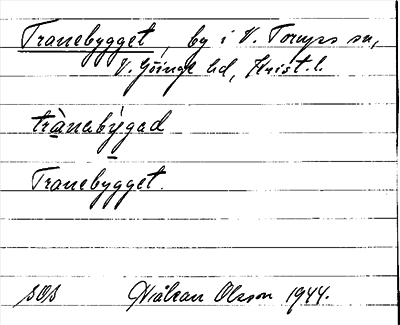 Tranebygget, by i V. Torups sn,
V. Göinge hd, Krist. l.
trànebýgad
Tranebygget.
SOS Håkan Olsson 1944.